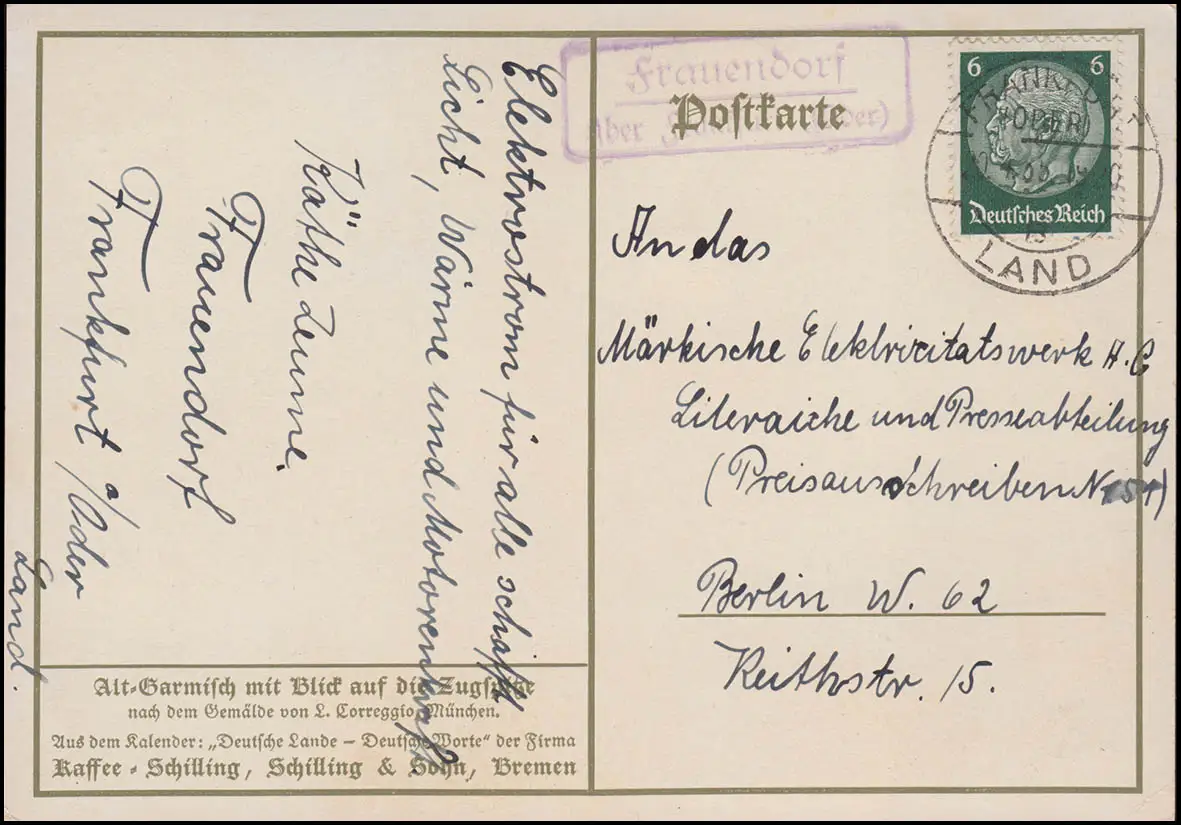 Elektrostrom für alle schafft
Licht, Wärme und Motorenkraft
Käthe Zeume.
Frauendorf
Frankfurt a/Oder
Land.
Alt-Garmisch mit Blick auf die Zugspitze
nach dem Gemälde von L. Correggio, München.
Aus dem Kalender: „Deutsche Lande – Deutsche Worte“ der Firma
Kaffee-Schilling, Schilling & Sohn, Bremen
Frauendorf
über (Oder)
Postkarte
6 6
Deutsches Reich
FRANKFURT
(ODER)
LAND
An das
Märkische Elektrizitatswerk A.G
Literaiche und Presseabteilung
(Preisausschreiben N 151)
Berlin W. 62
Keithstr. 15.